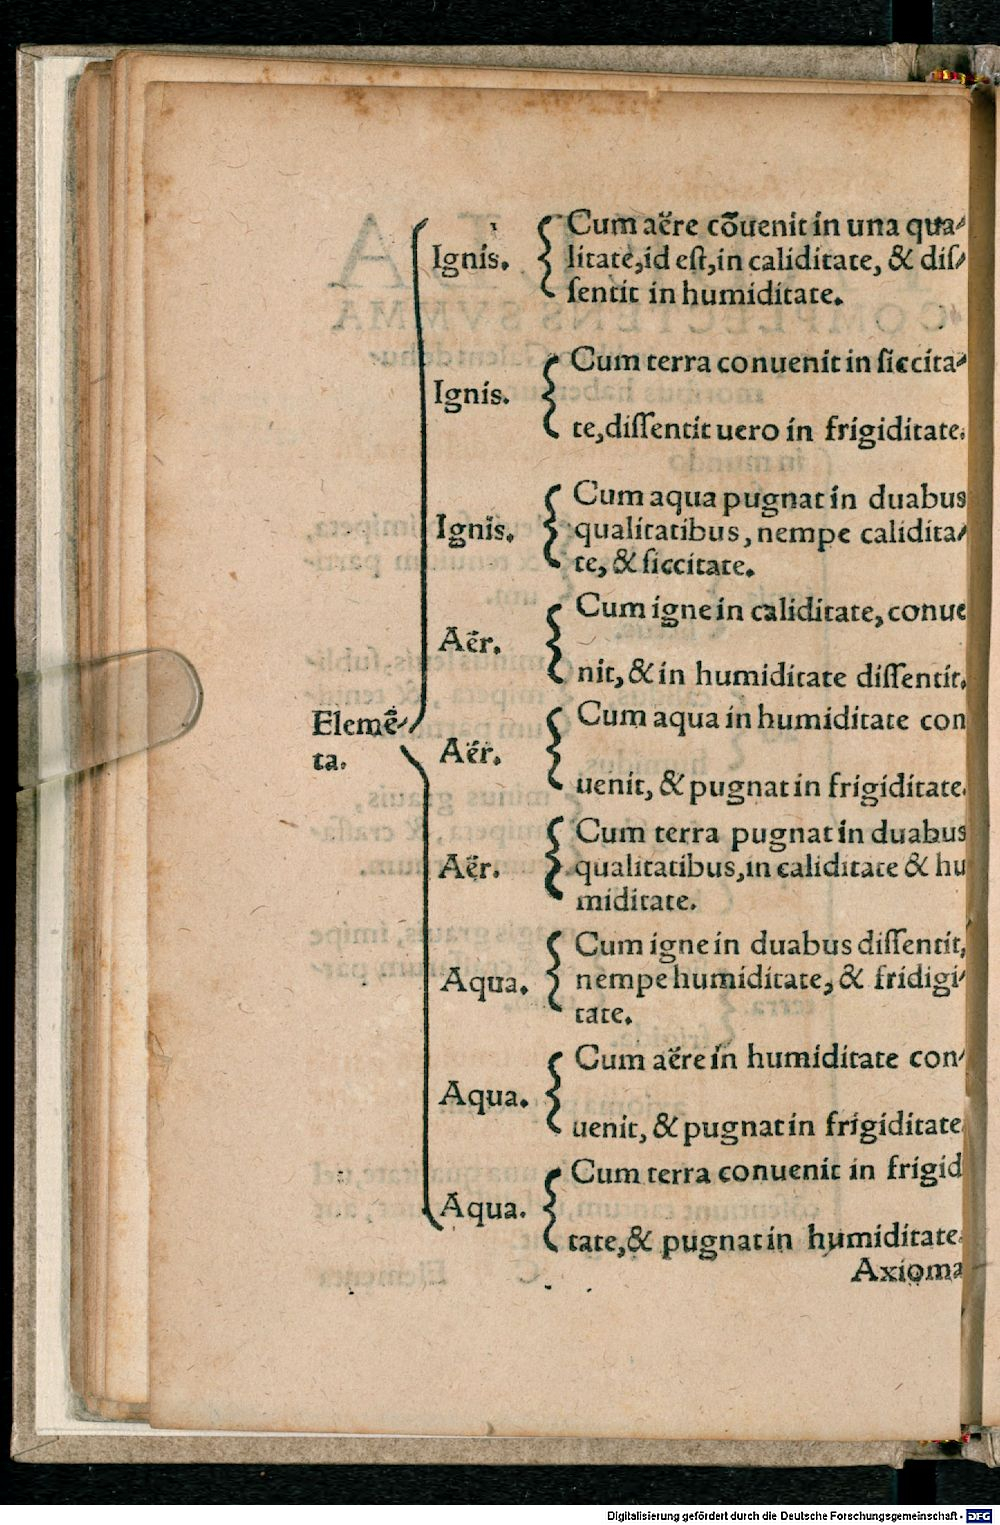 Ignis.
Cum aëre cõuenit in una qua-
litate, id est, in caliditate, & dis-
sentit in humiditate.
Ignis.
Cum terra conuenit in siccita-
te, dissentit uero in frigiditate.
Ignis.
Cum aqua pugnat in duabus
qualitatibus, nempe calidita-
te, & siccitate.
Aër.
Cum igne in caliditate, conue
nit, & in humiditate dissentit.
Elemẽ-
ta.
Aër.
Cum aqua in humiditate con
uenit, & pugnat in frigiditate.
Aër.
Cum terra pugnat in duabus
qualitatibus, in caliditate & hu
miditate.
Aqua.
Cum igne in duabus dissentit,
nempe humiditate, & fridigi-
tate.
Aqua.
Cum aëre in humiditate con-
uenit, & pugnat in frigiditate
Aqua.
Cum terra conuenit in frigid
tate, & pugnat in humiditate.
Axioma
Digitalisierung gefördert durch die Deutsche Forschungsgemeinschaft - DFG